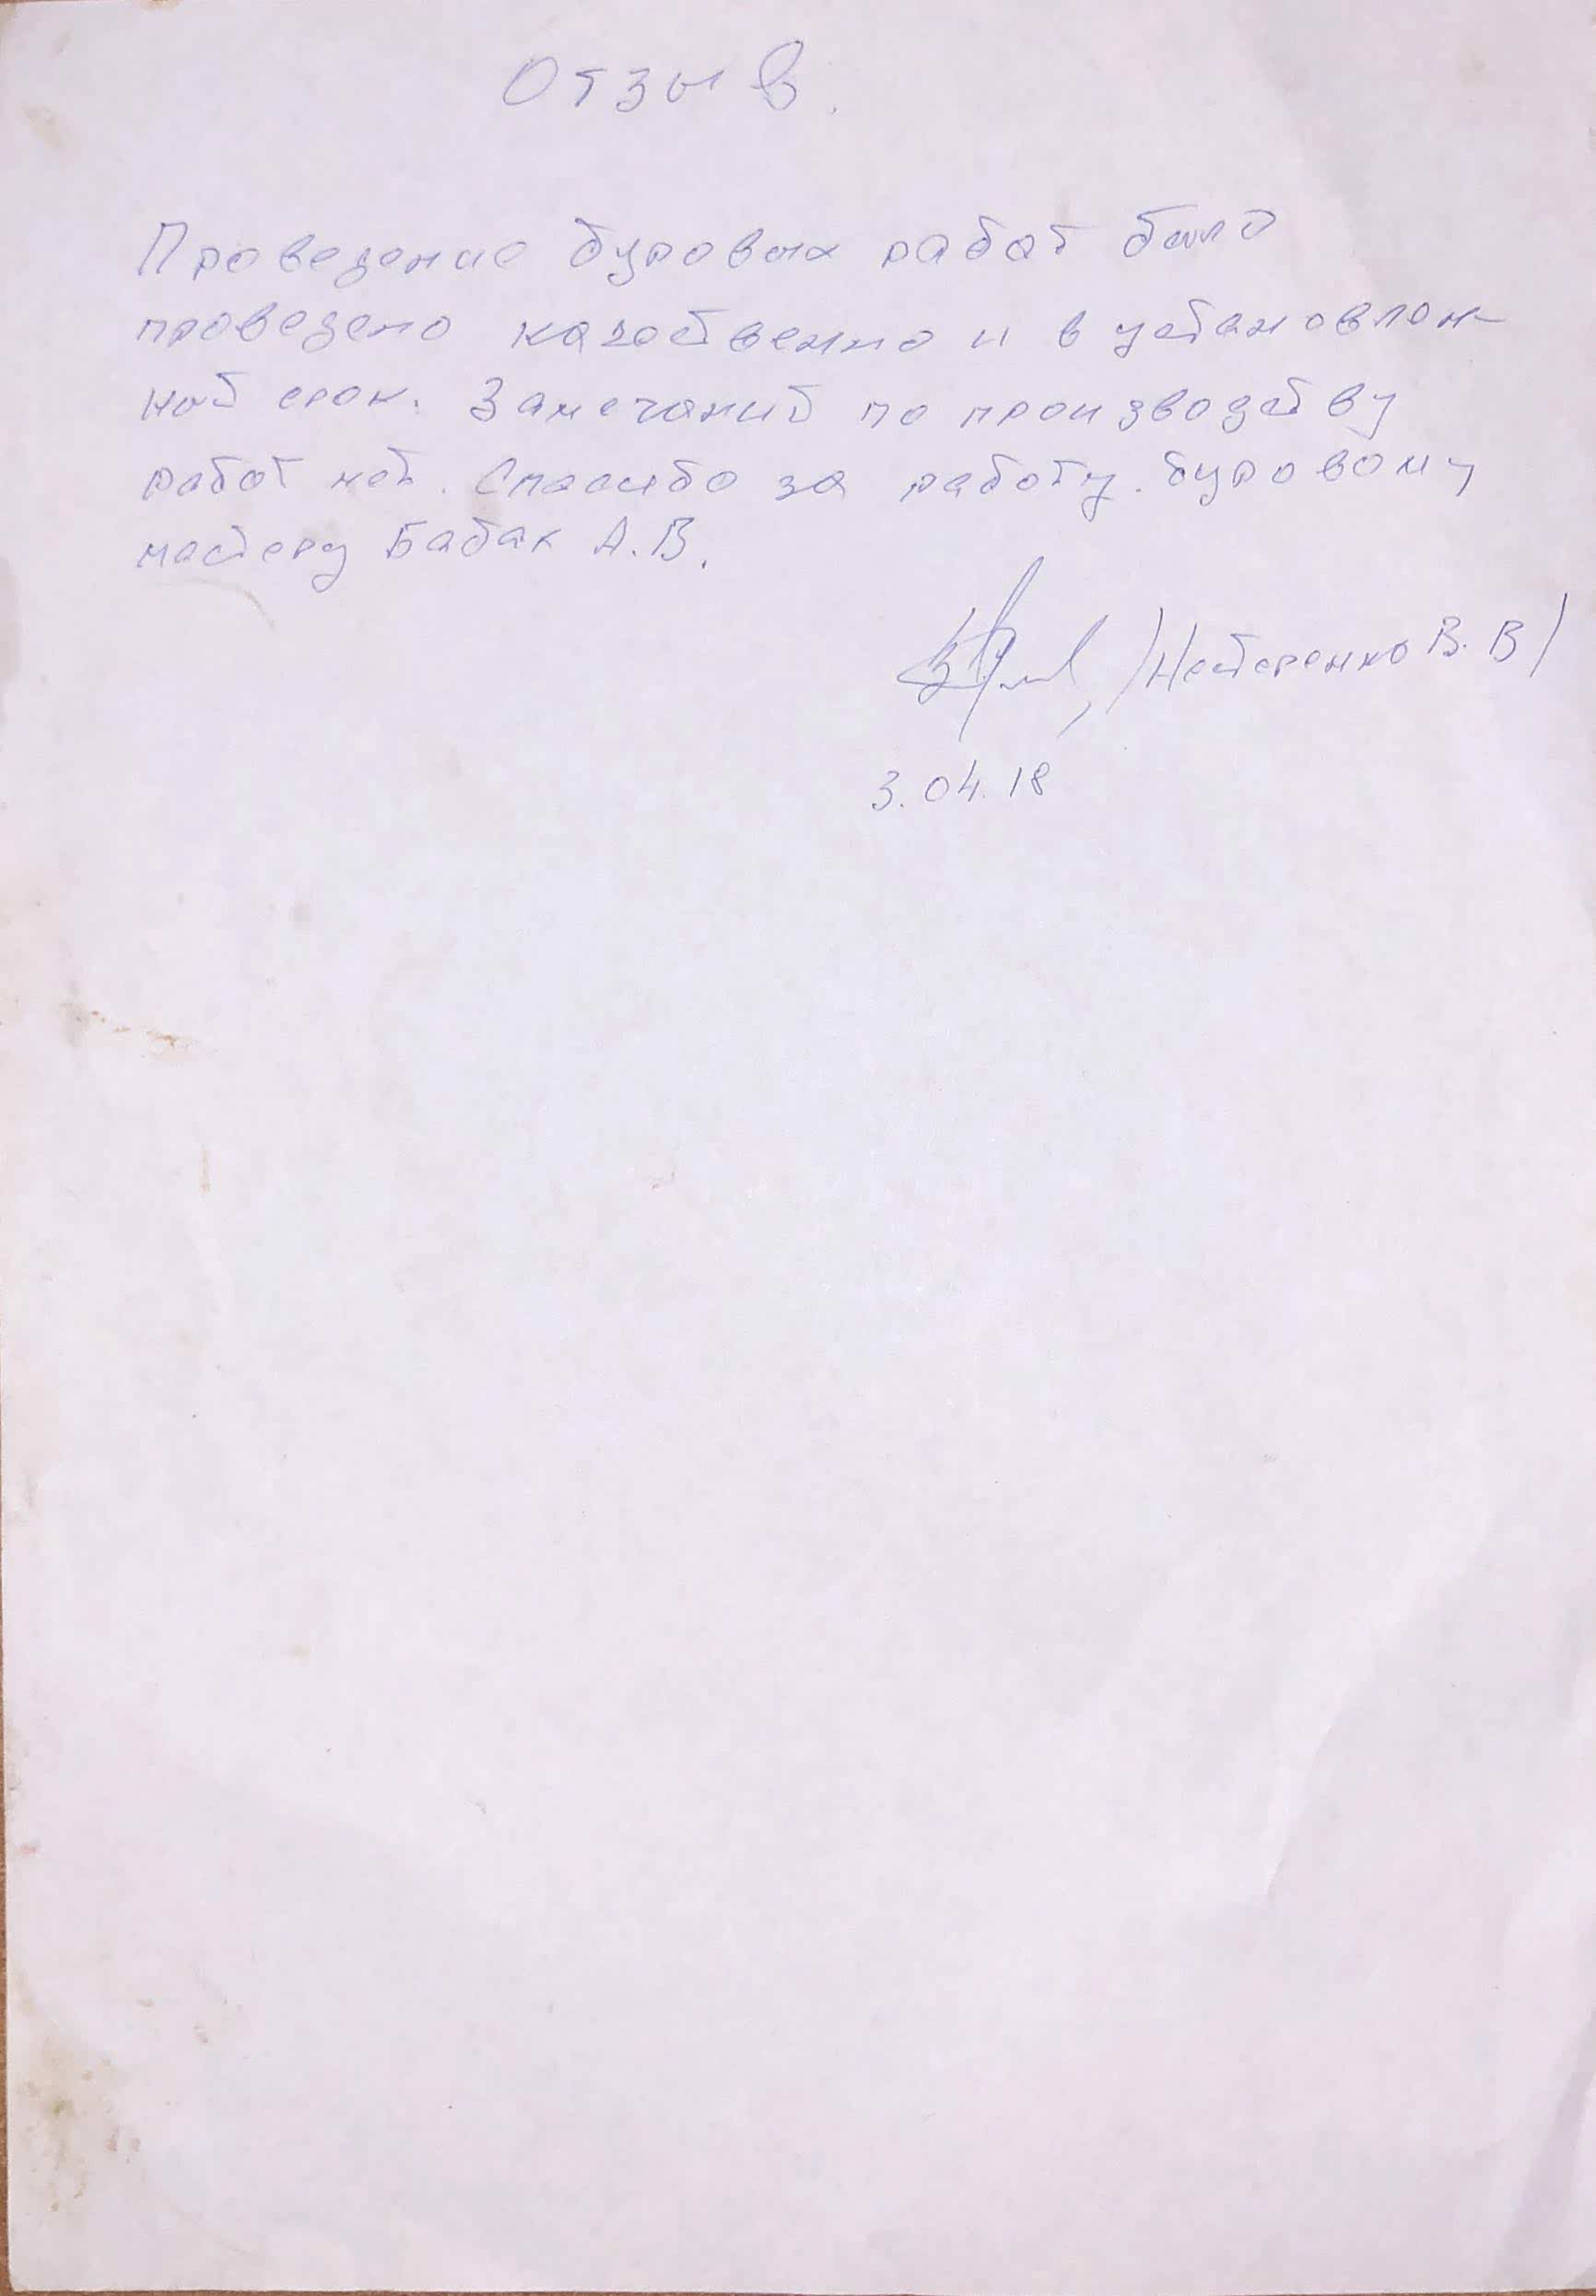 Отзыв.
Проведение буровых работ было
проведено качественно и в установлен-
ный срок. Замечаний по производству
работ нет. Спасибо за работу буровому
мастеру Бабак А.В.
/Нестеренко В.В/
3.04.18